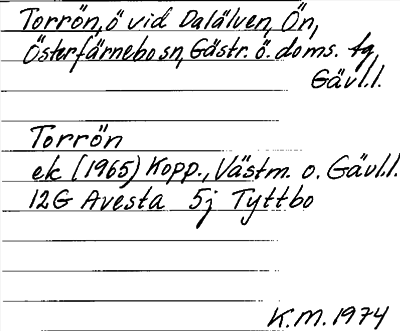 Torrön, ö vid Dalälven, Ön,
Österfärnebo sn, Gästr. ö. doms. tg,
Gävl.l.
Torrön
ek (1965) Kopp., Västm. o. Gävl.l.
12G Avesta 5j Tyttbo
K.M. 1974